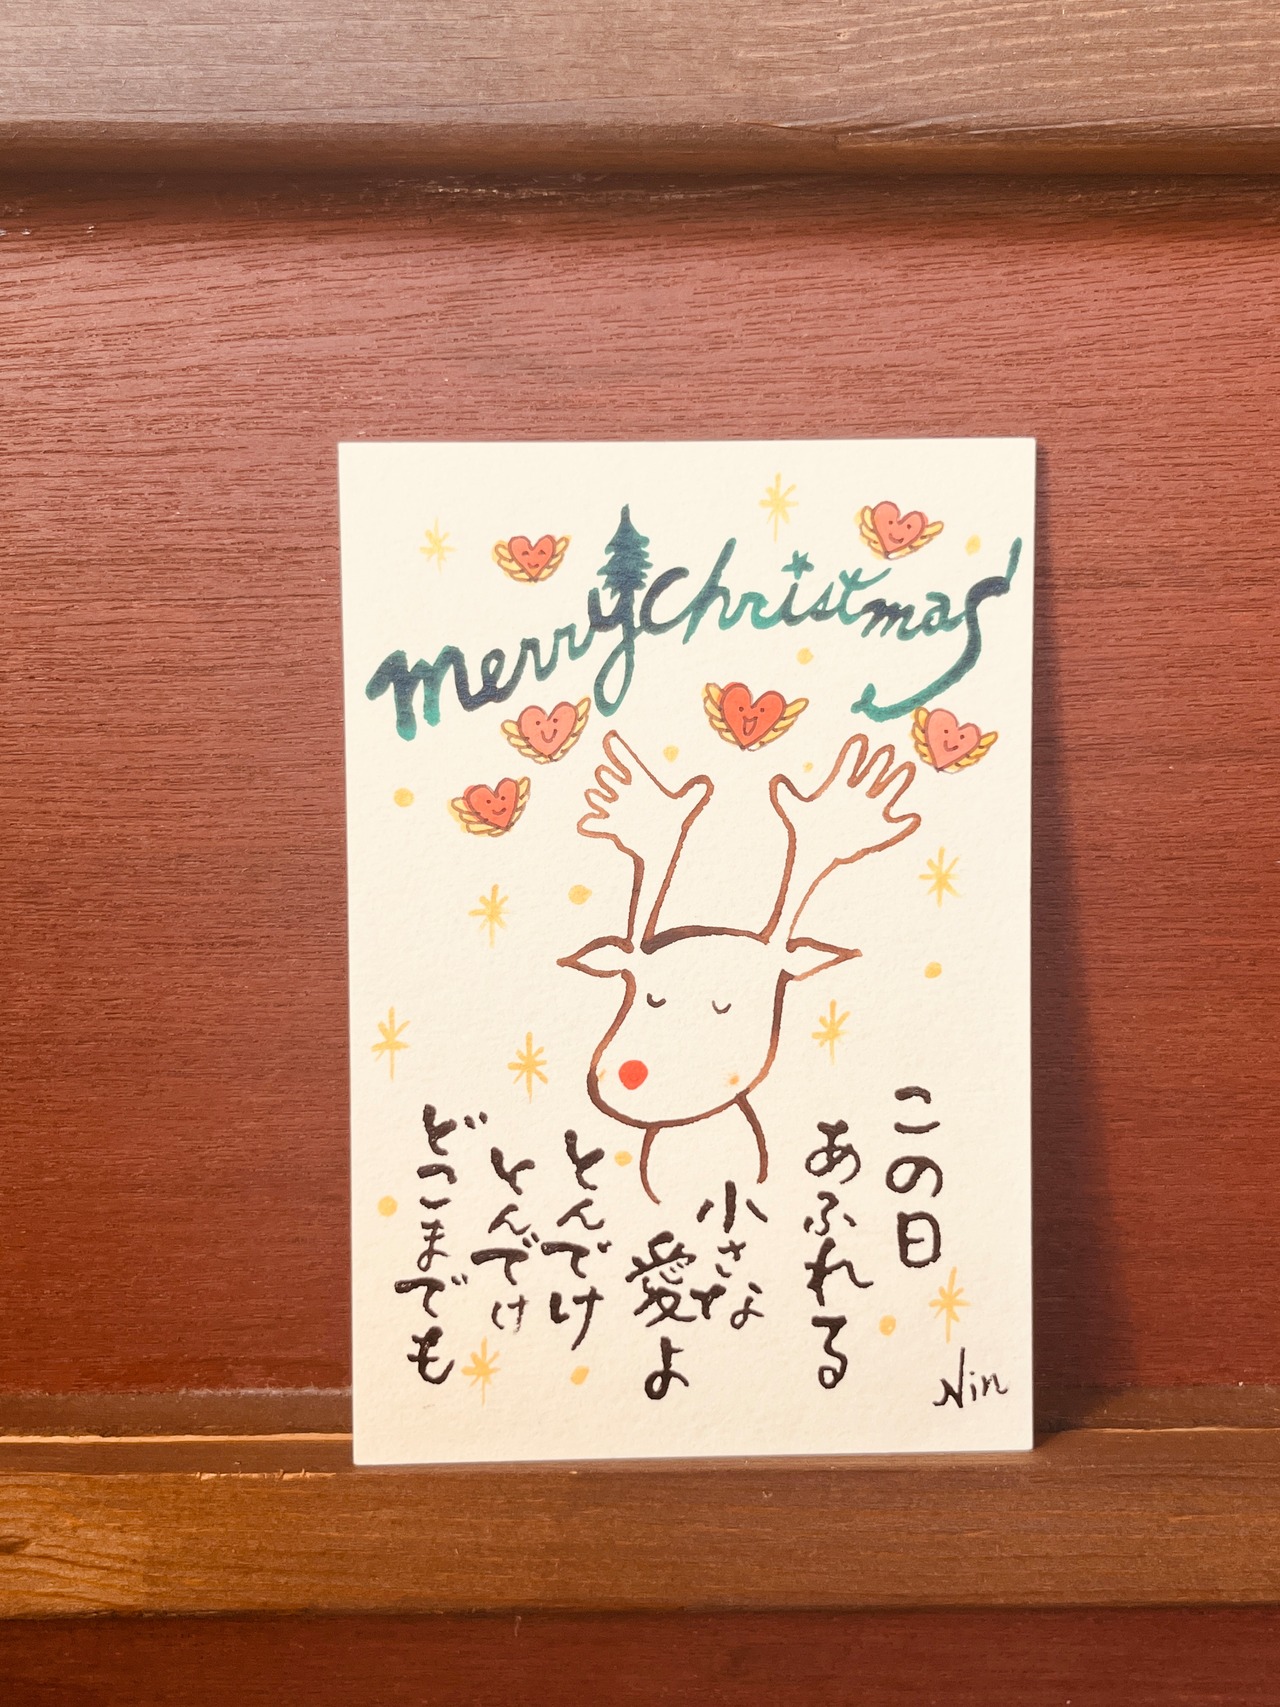 merry christmas
この日
あふれる
小さな
愛よ
とんでけ
とんでけ
どこまでも
Nin